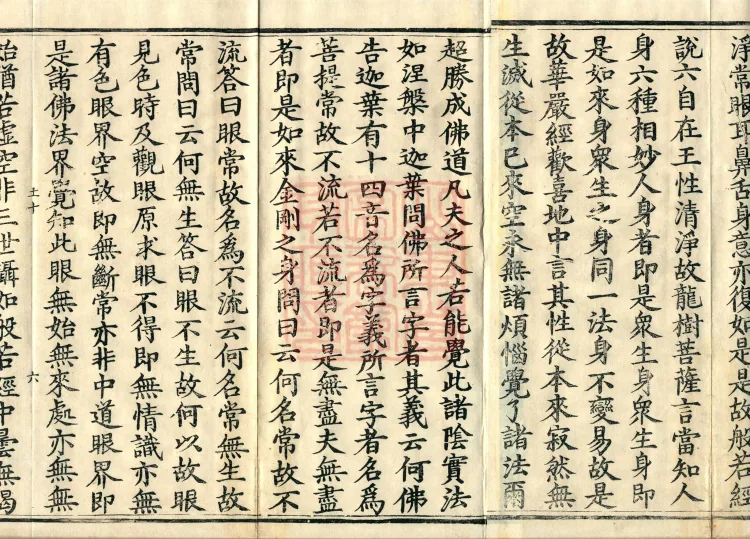 淨常眼耳鼻舌身意亦復如是是故般若經
說六自在王性清淨故龍樹菩薩言當知人
身六種相妙人身者即是衆生身衆生身即
是如來身衆生之身同一法身不變易故是
故華嚴經歡喜地中言其性從本來寂然無
生滅從本已來空永無諸煩惱覺了諸法爾
超勝成佛道凡夫之人若能覺此諸陰實法
如涅槃中迦葉問佛所言字者其義云何佛
告迦葉有十四音名爲字義所言字者名爲
菩提常故不流若不流者即是無盡夫無盡
者即是如來金剛之身問曰云何名常故不
流答曰眼常故名爲不流云何名常無生故
常問曰云何無生答曰眼不生故何以故眼
見色時及觀眼原求眼不得即無情識亦無
有色眼界空故即無斷常亦非中道眼界即
是諸佛法界覺知此眼無始無來處亦無無
六
始猶若虛空非三世攝如般若經中曇無竭